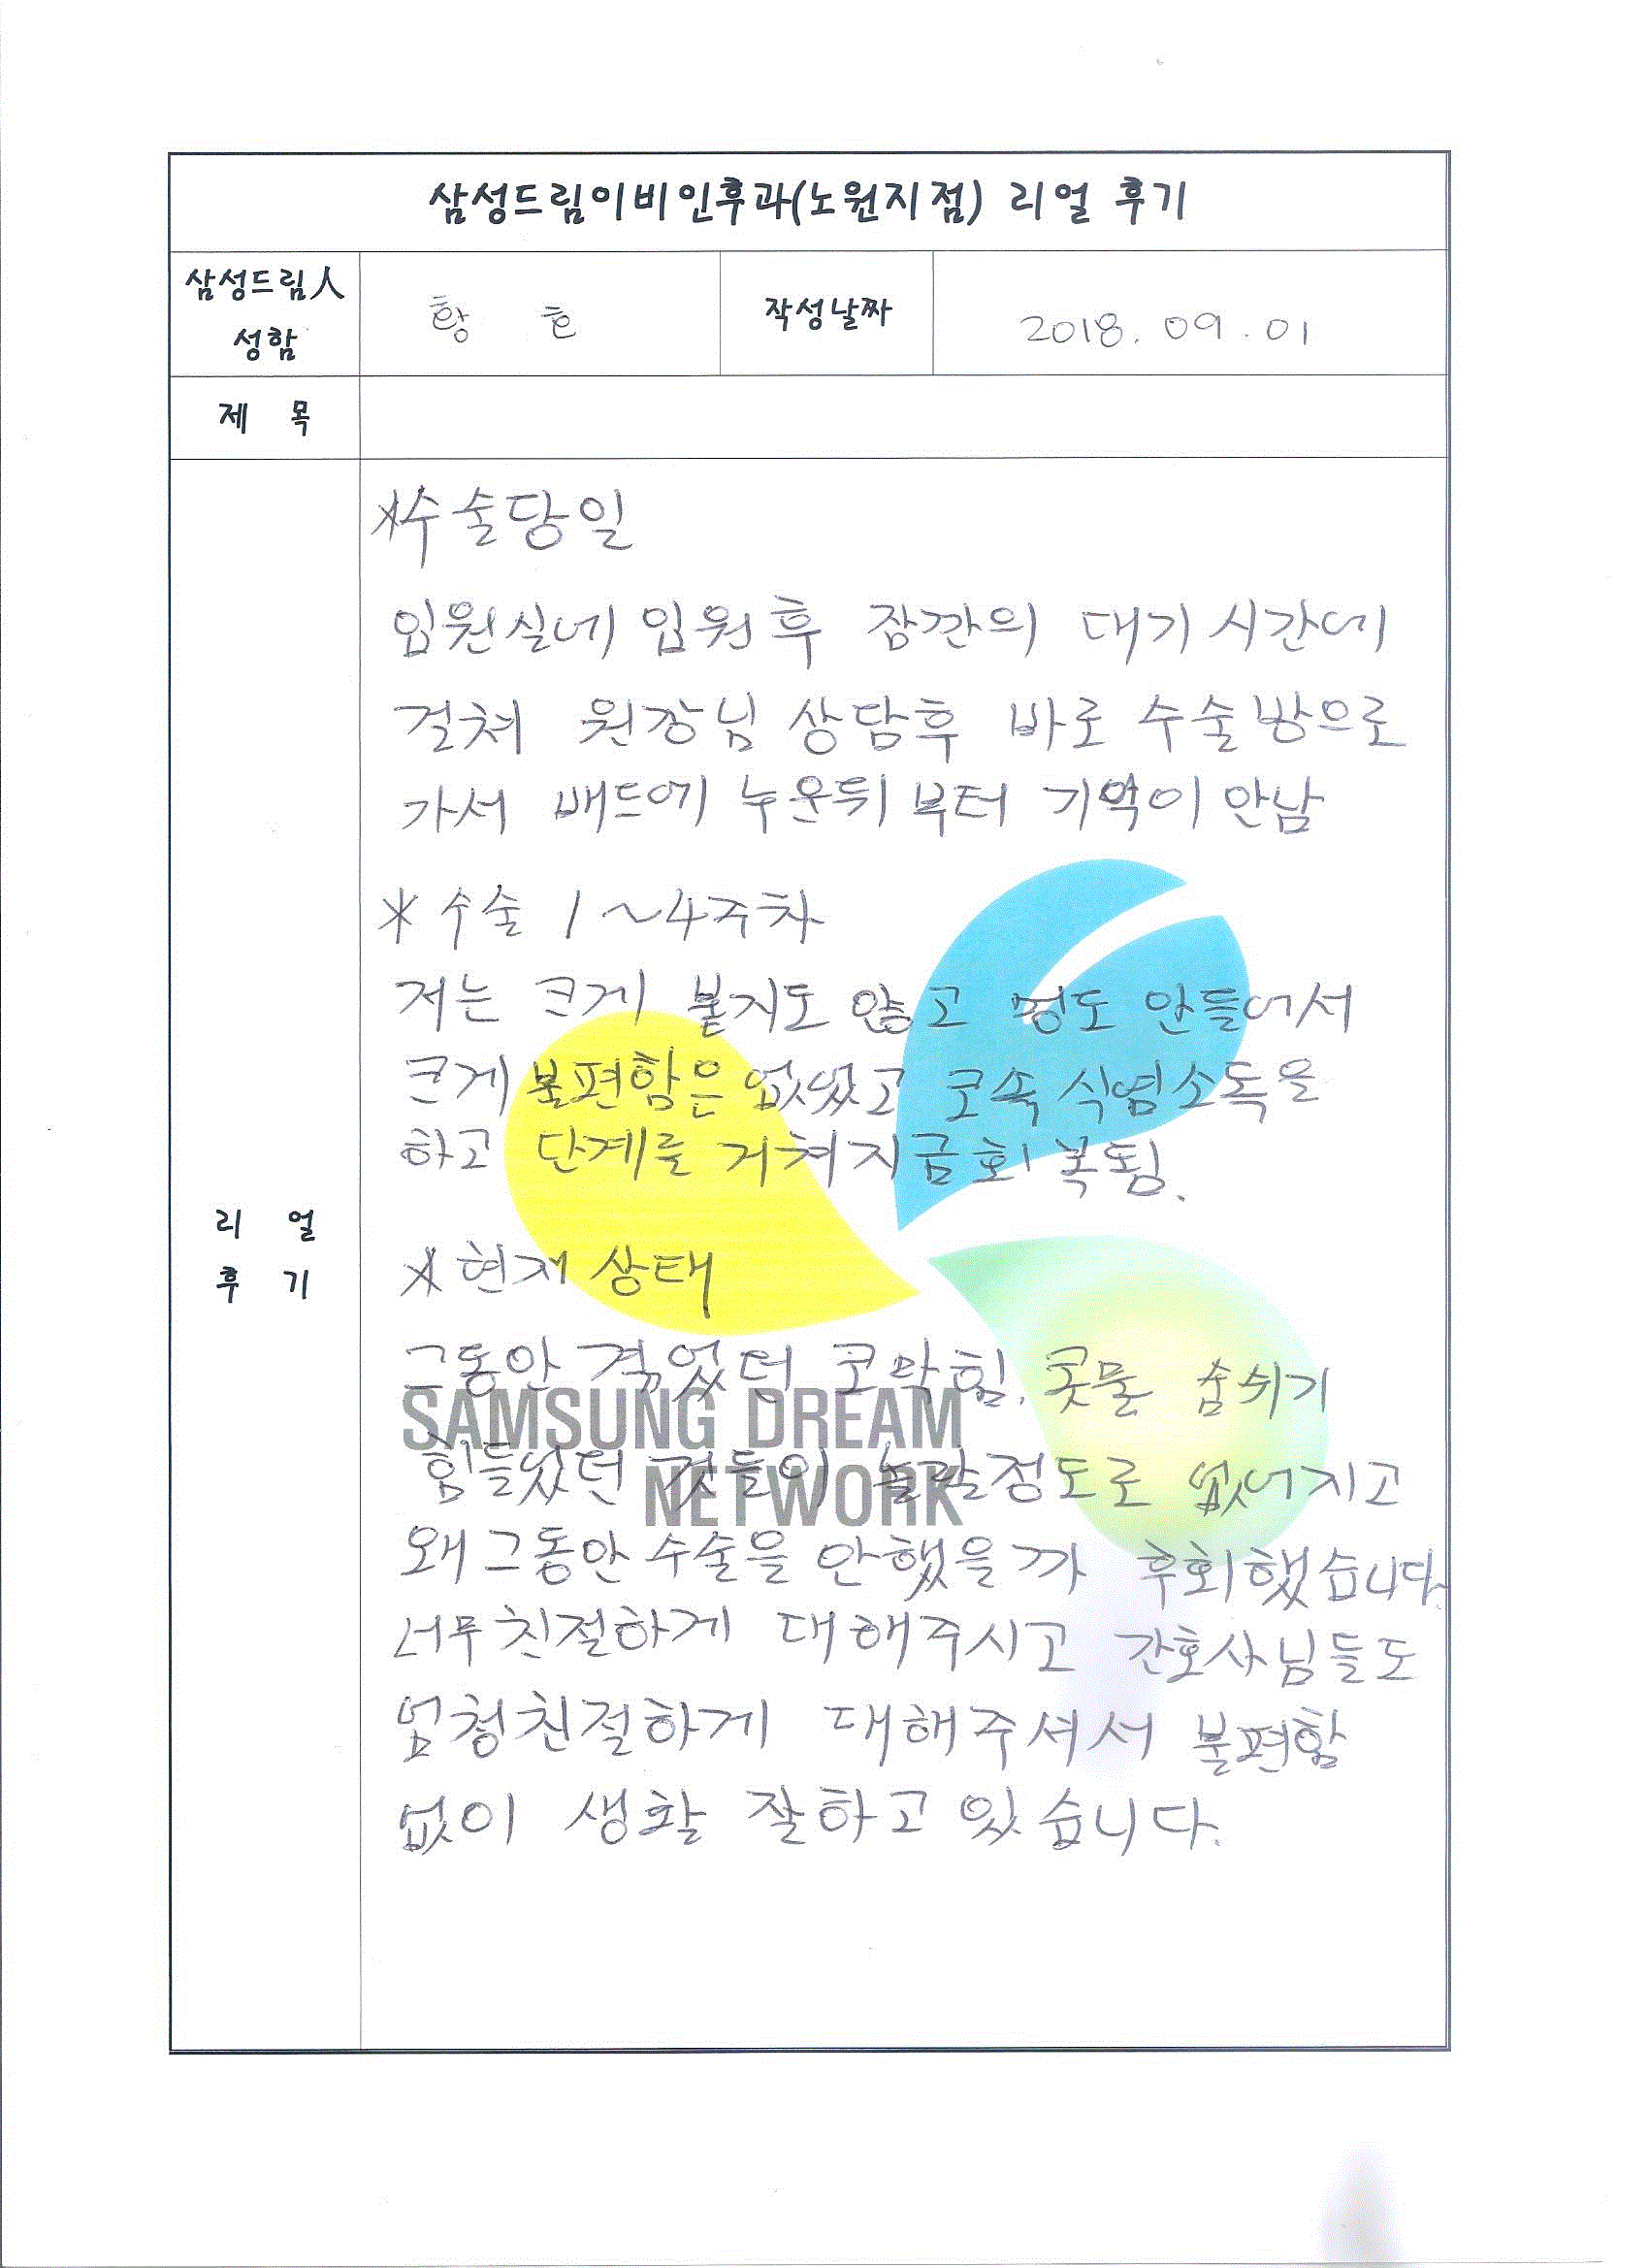 삼성드림이비인후과(노원지점) 리얼 후기
삼성드림人
성함
황 호
작성날짜
2018. 09. 01
제 목
리 얼
후 기
*수술당일
입원실에 입원후 잠깐의 대기시간에
걸쳐 원장님 상담후 바로 수술방으로
가서 배드에 누운뒤 부터 기억이 안남
* 수술 1~4주차
저는 크게 붙지도 않고 멍도 안들어서
크게 불편함은 없었고 코속 식염소독을
하고 단계를 거쳐 지금 회복됨.
* 현재 상태
그동안 겪었던 코막힘, 콧물 숨쉬기
힘들었던 것들이 놀랄정도로 없어지고
왜 그동안 수술을 안했을까 후회했습니다.
너무 친절하게 대해주시고 간호사님들도
엄청친절하게 대해주셔서 불편함
없이 생활 잘하고 있습니다.
SAMSUNG DREAM
NETWORK